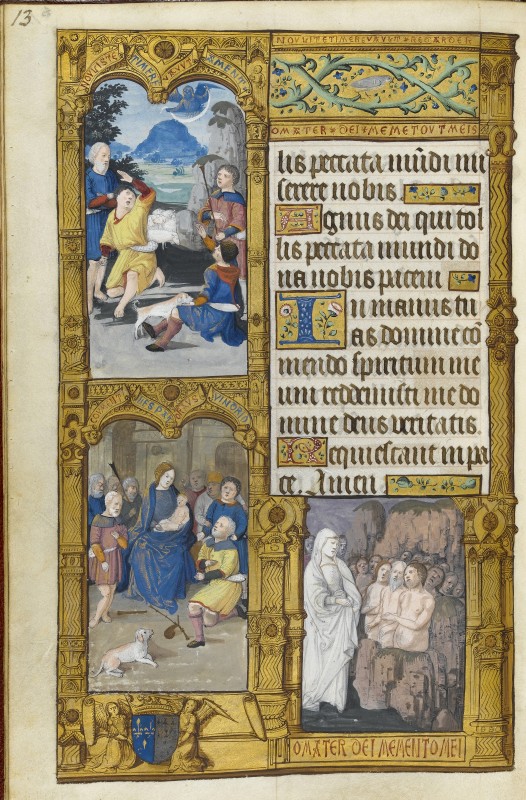 13
O MATER DEI MEMETOVT MEIS
lis peccata mũdi mi
serere nobis
Agnus dei qui tol
lis peccata mundi do
na nobis pacem
In manus tu
as domine cõ
mendo spiritum me
um redemisti me do
mine deus veritatis.
Requiescant in pa
ce. Amen
O MATER DEI MEMENTO MEI